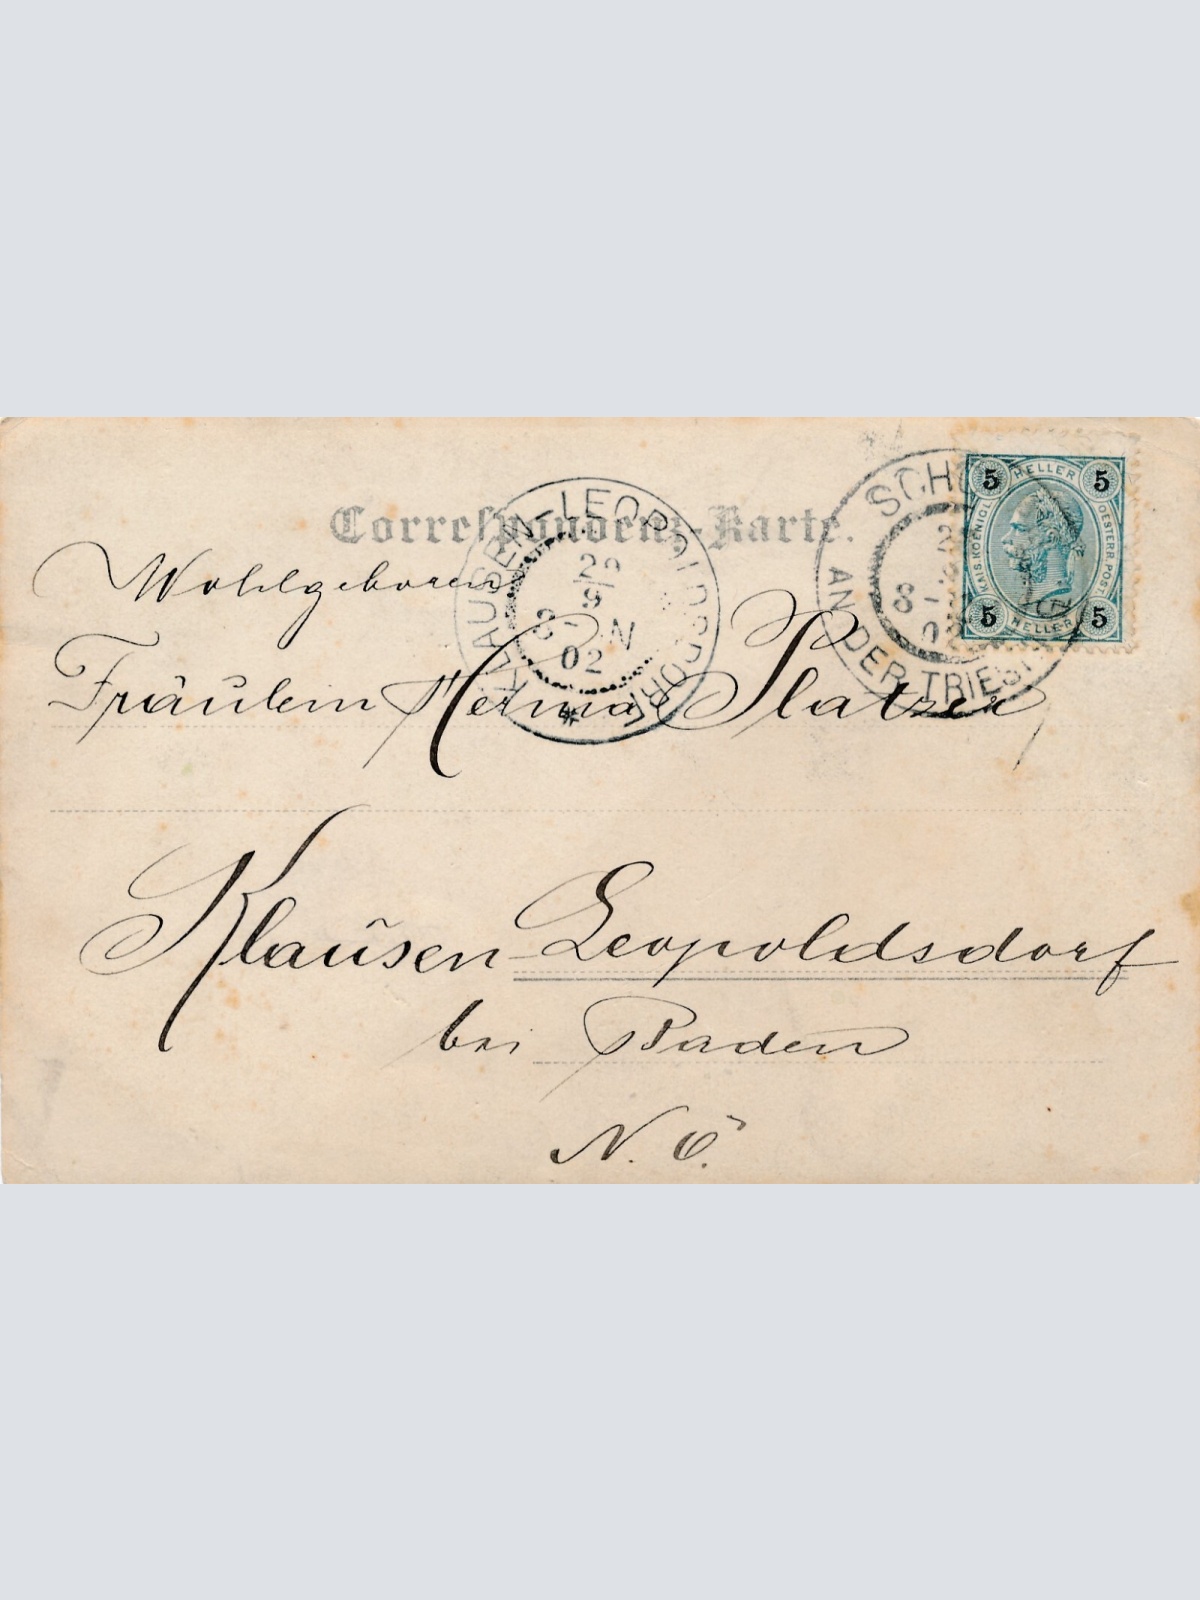 Correspondenz-Karte.
5 HELLER 5
KAIS. KOENIGL.
OESTERR. POST
5 HELLER 5
KLAUSEN-LEOPOLDSDORF
29
9
8 - N
02
SCHÖ
AN DER TRIEST
2
8 -
02
Wohlgeboren
Fräulein Herma Platzer
Klausen-Leopoldsdorf
bei Baden
N. Ö.